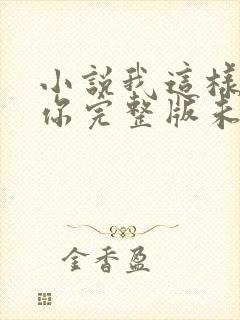 小說我這樣
你完整版未
金香盈